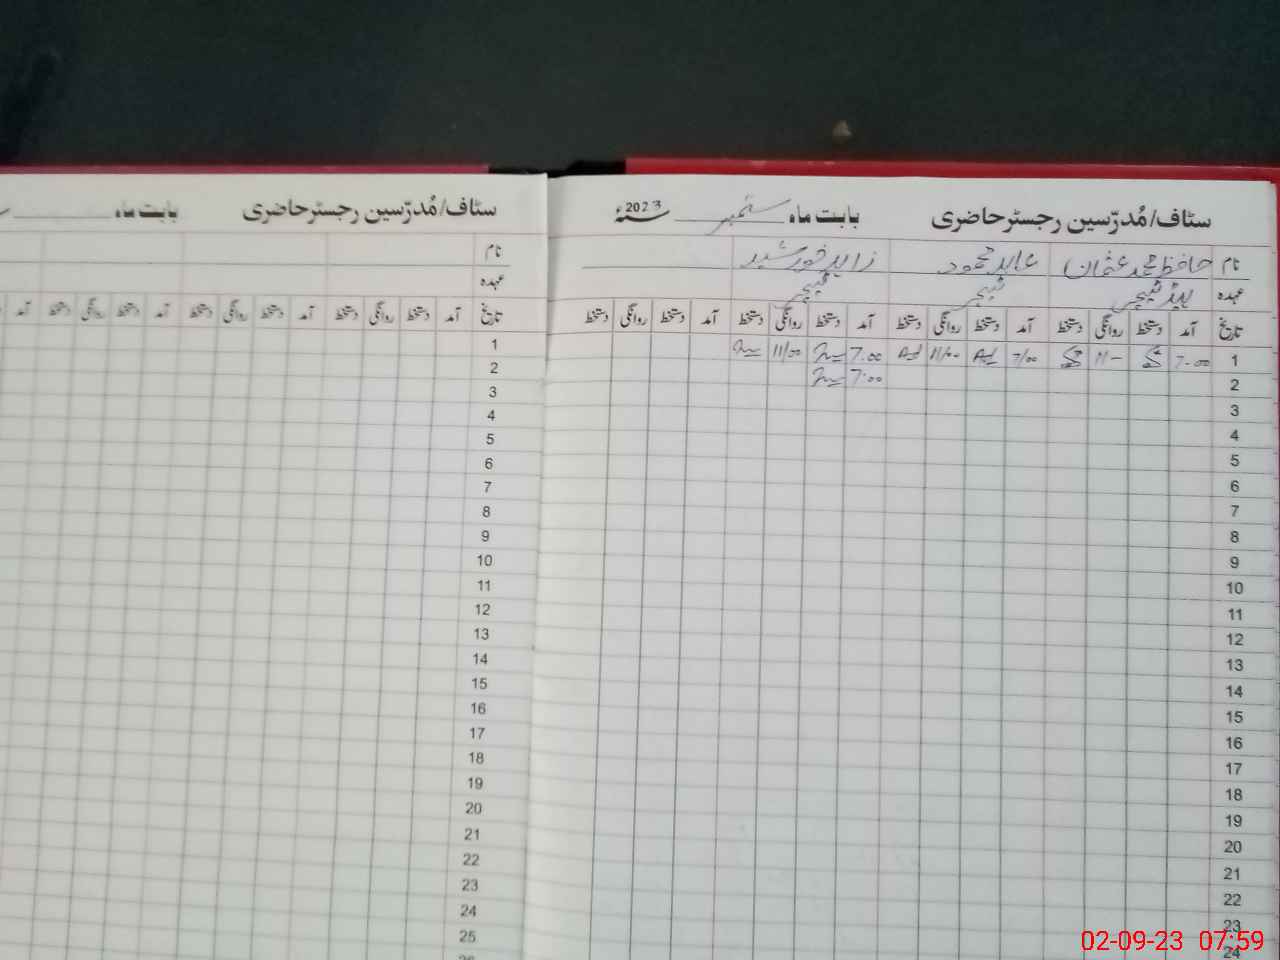 سٹاف/مُدرّسین رجسٹرحاضری بابت ماہ ستمبر 2023
نام حافظ محمد عثمان عابد محمود زاہد خورشید
عہدہ ہیڈ ٹیچر ٹیچر ٹیچر
تاریخ آمد دستخط روانگی دستخط آمد دستخط روانگی دستخط آمد دستخط روانگی دستخط آمد دستخط روانگی دستخط
1 7.00 11- 7/00 11/00 7.00 11/00
2 7:00
3
4
5
6
7
8
9
10
11
12
13
14
15
16
17
18
19
20
21
22
23
24
سٹاف/مُدرّسین رجسٹرحاضری بابت ماہ
نام
عہدہ
تاریخ آمد دستخط روانگی دستخط آمد دستخط روانگی دستخط آمد دستخط روانگی دستخط آمد
1
2
3
4
5
6
7
8
9
10
11
12
13
14
15
16
17
18
19
20
21
22
23
24
25
26
02-09-23 07:59